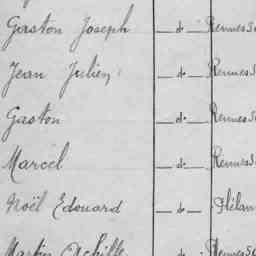 Gaston Joseph — do — Rennes
Jean Julien — do — Rennes
Gaston — do — Rennes
Marcel — do — Rennes
Noël Edouard — do — Plélan
Martin Achille — do — Rennes